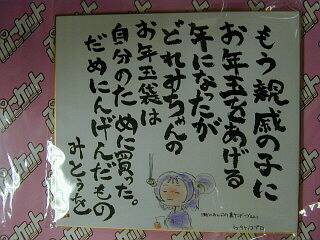 もう親戚の子に
お年玉をあげる
年になったが
どれみちゃんの
お年玉袋は
自分のために買った。
だめにんげんだもの
みとぅを